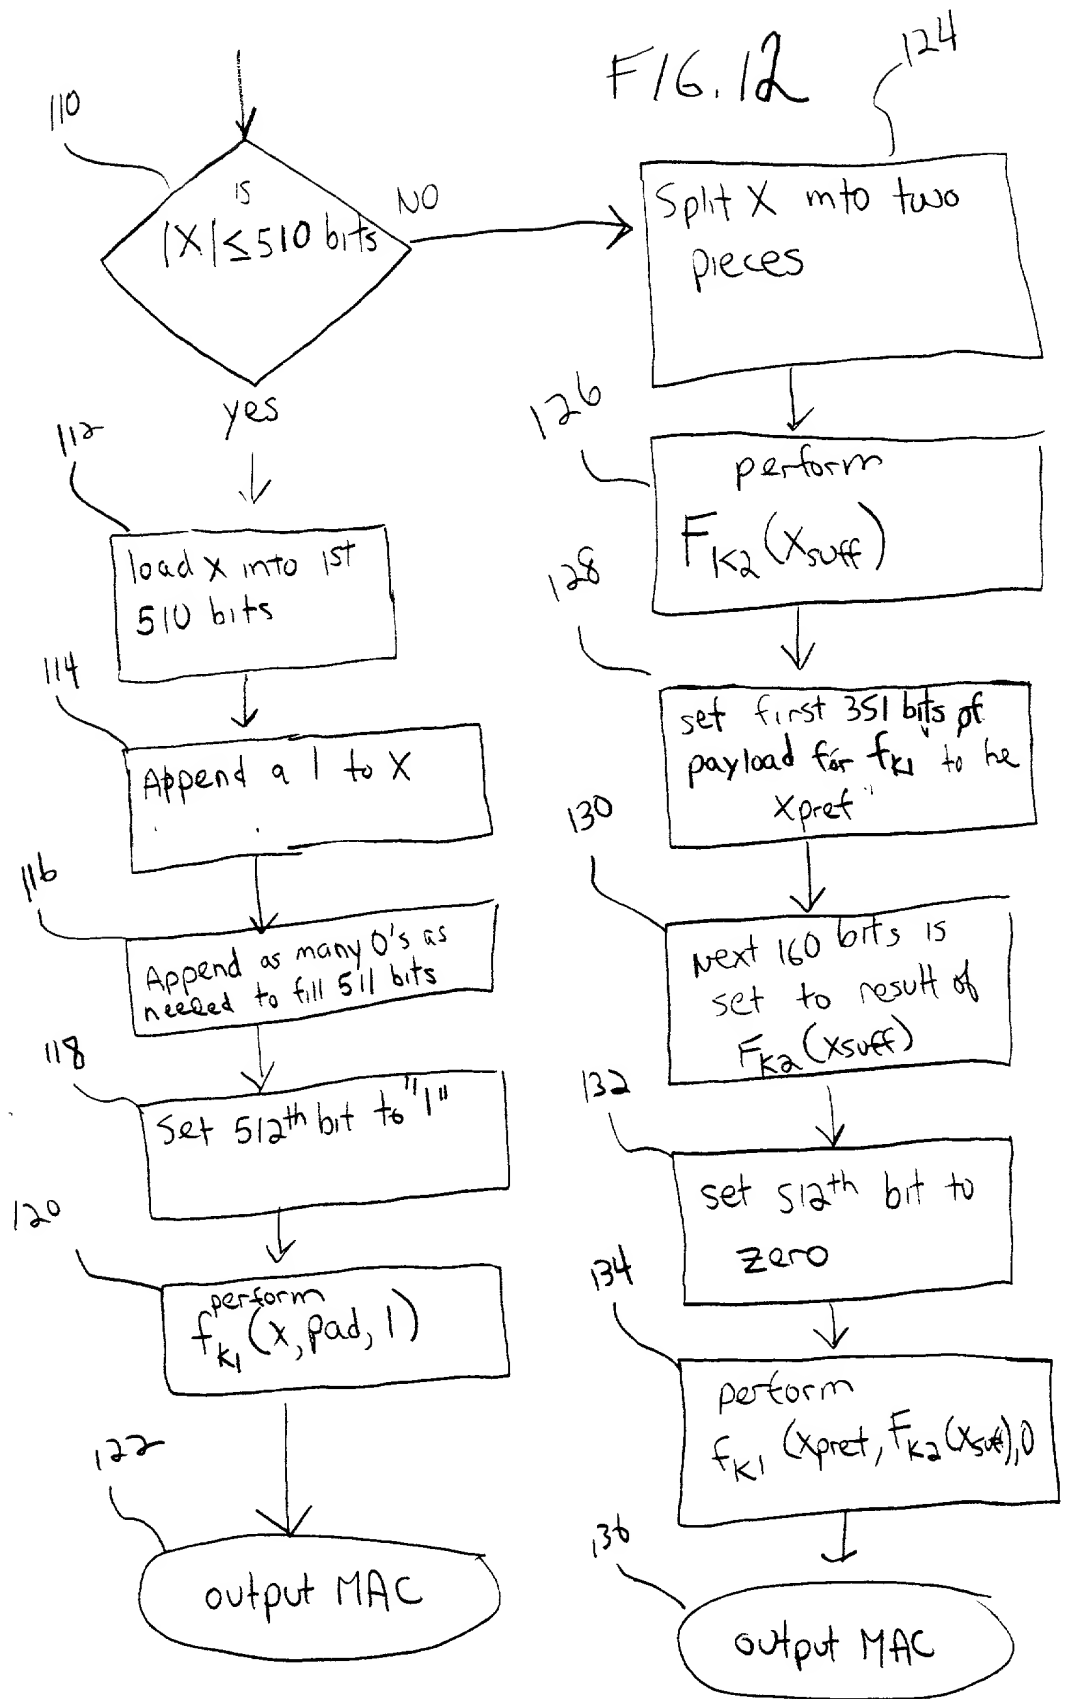 FIG. 12
110
is
|X| ≤ 510 bits
NO
yes
112
load X into 1st
510 bits
114
Append a 1 to X
116
Append as many 0's as
needed to fill 511 bits
118
Set 512th bit to "1"
120
perform
fK1 (X, pad, 1)
122
output MAC
124
Split X into two
pieces
126
perform
FK2 (Xsuff)
128
set first 351 bits of
payload for fK1 to be
Xpref"
130
Next 160 bits is
set to result of
FK2 (Xsuff)
132
set 512th bit to
zero
134
perform
fK1 (Xpref, FK2(Xsuf),0
136
output MAC